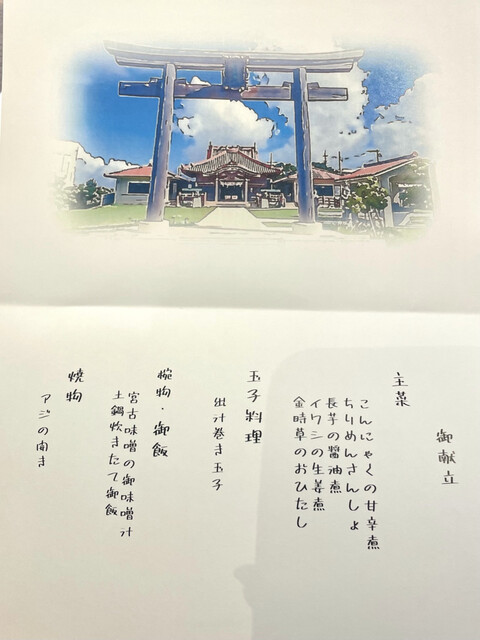 御献立
主菜
こんにゃくの甘辛煮
ちりめんさんしょ
長芋の醤油煮
イワシの生姜煮
金時草のおひたし
玉子料理
出汁巻き玉子
椀物・御飯
宮古味噌の御味噌汁
土鍋炊きたて御飯
焼物
アジの開き